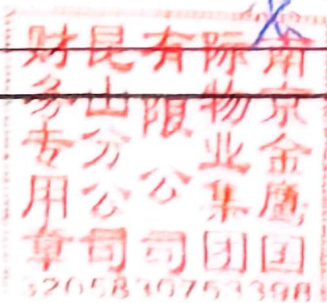 南京金鹰国
际物业集团
有限公司
昆山分公司
财务专用章
3205830753398